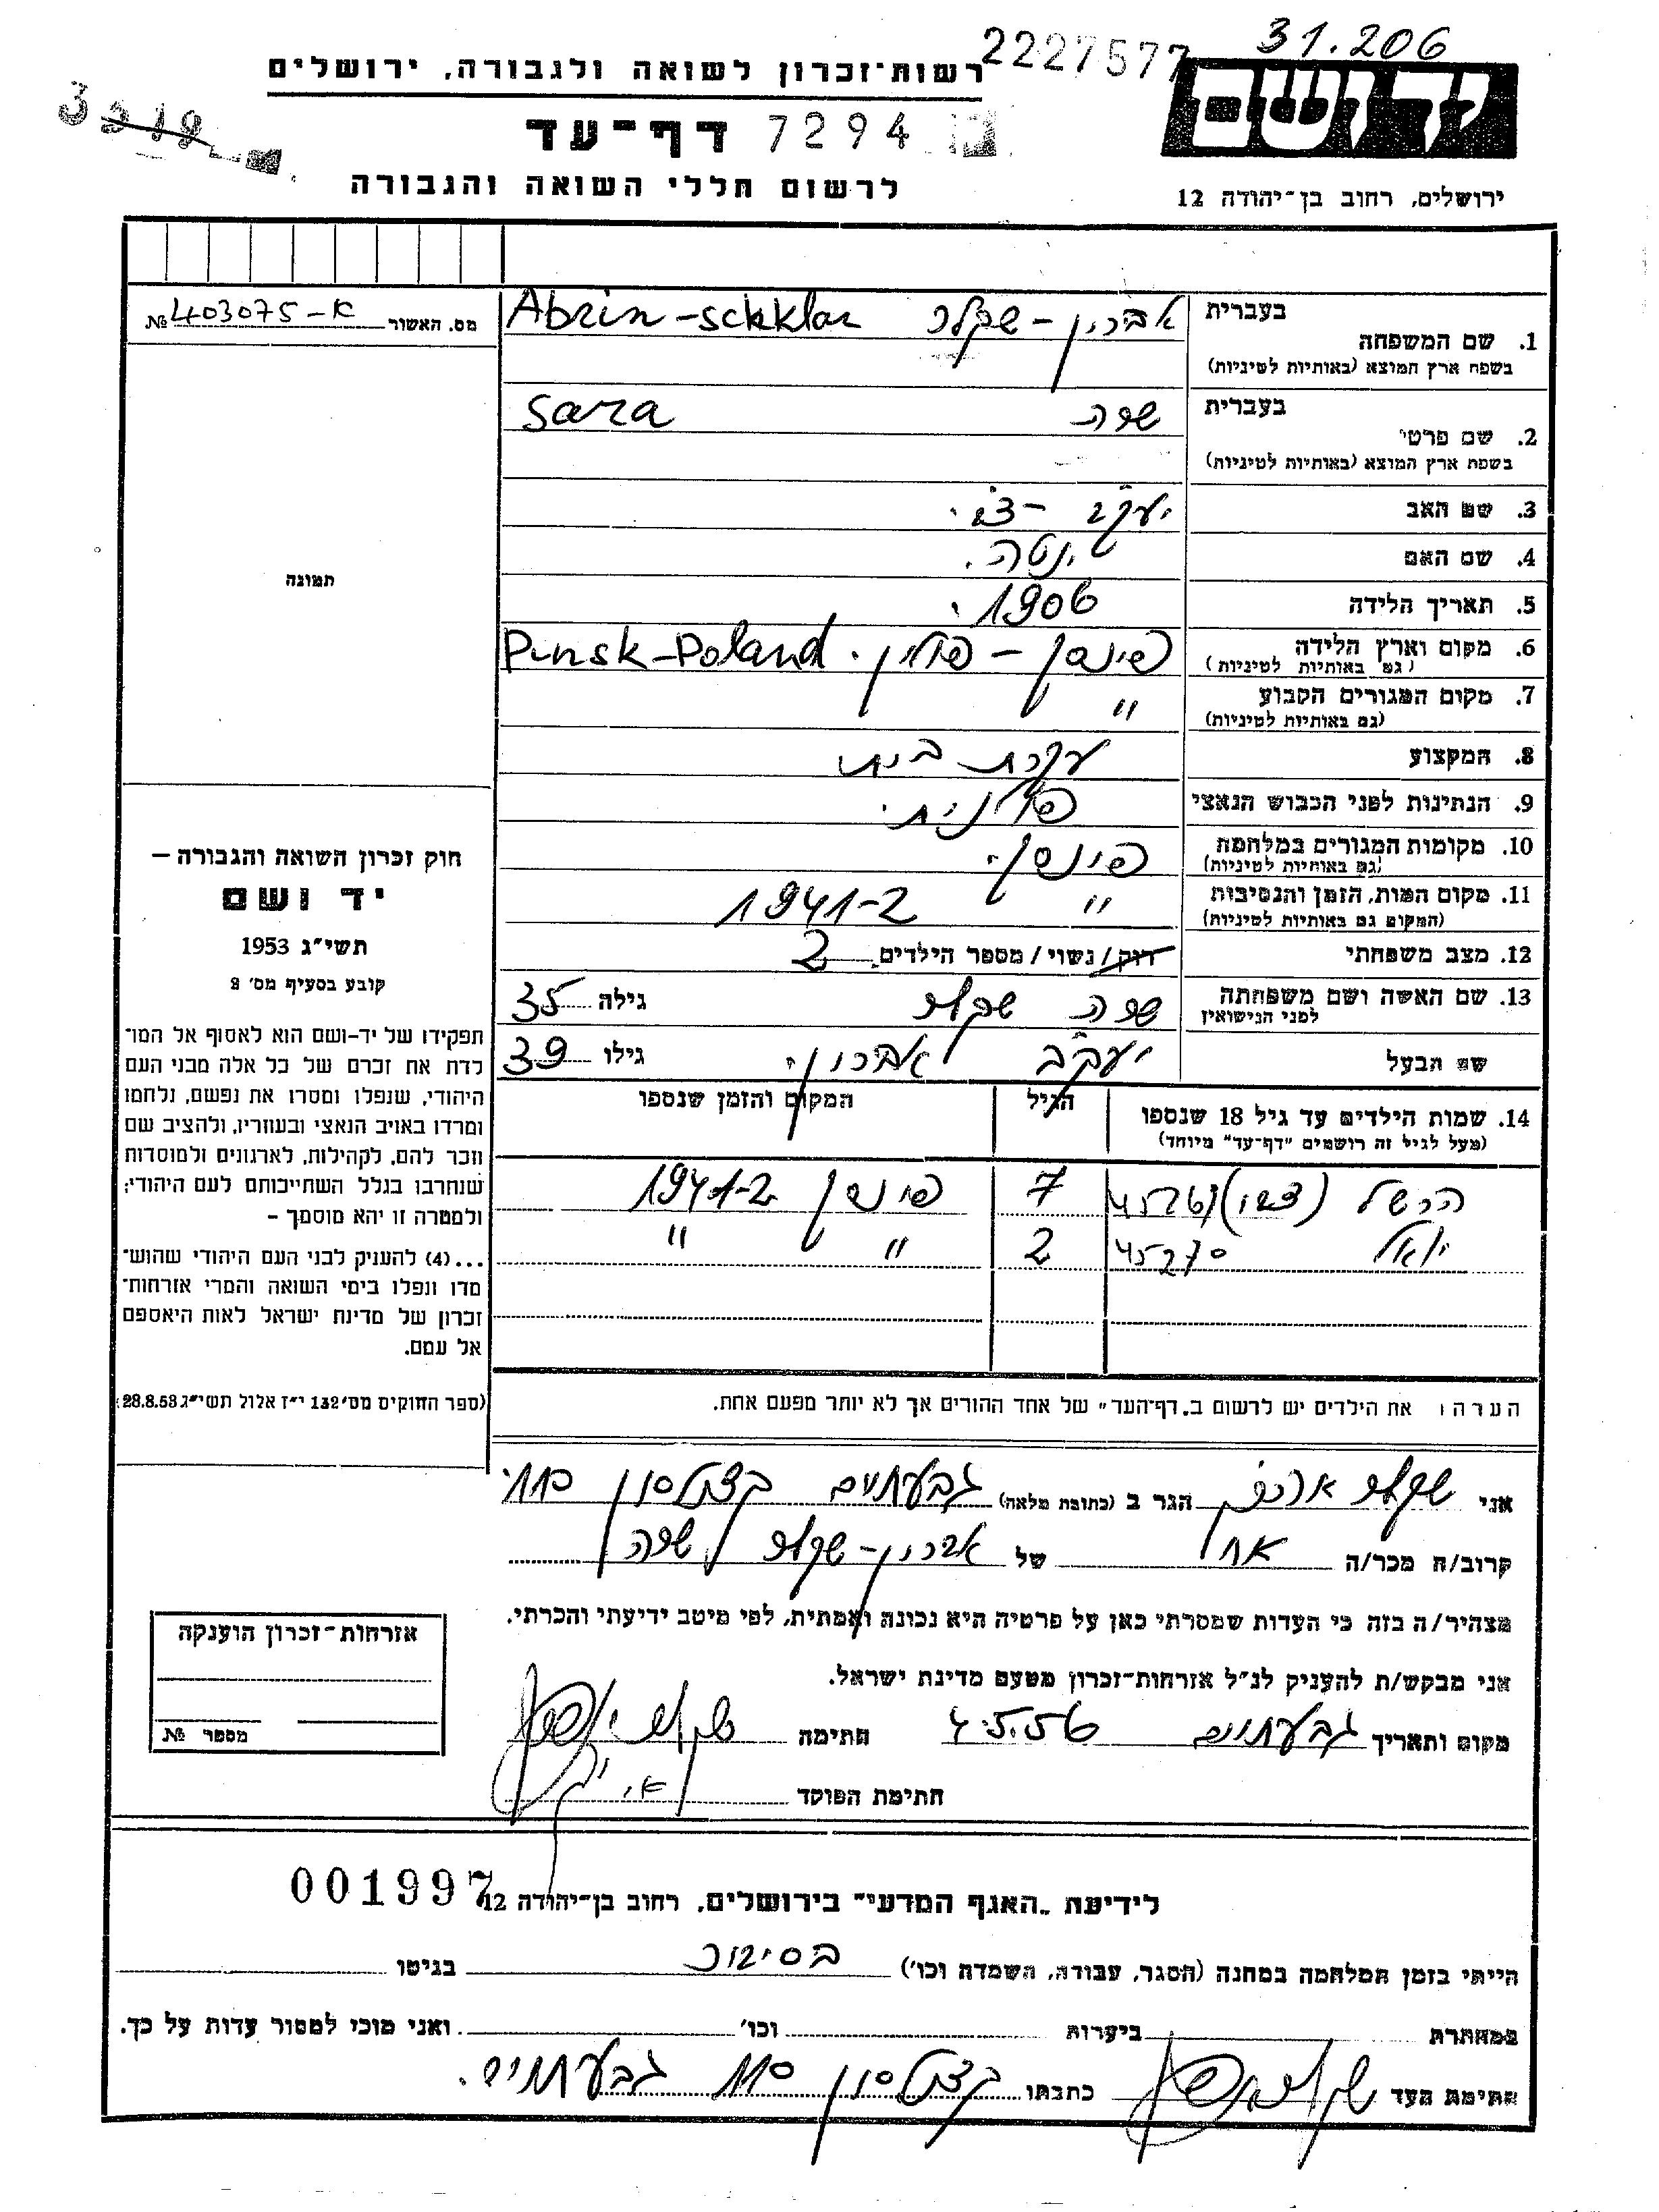 31.206
2227577
רשות־זכרון לשואה ולגבורה, ירושלים
יד ושם
3519
7294 דף־עד
לרשום חללי השואה והגבורה
ירושלים, רחוב בן־יהודה 12
מס. האשור 403075-א №
תמונה
בעברית
1. שם המשפחה
בשפת ארץ המוצא (באותיות לטיניות)
אברון - שקלר Abrin-sckklar
בעברית
2. שם פרטי
בשפת ארץ המוצא (באותיות לטיניות)
שרה Sara
3. שם האב יעקב - צבי
4. שם האם ינטה.
5. תאריך הלידה 1906
6. מקום וארץ הלידה
(גם באותיות לטיניות)
פינסק - פולין. Pinsk-Poland
7. מקום המגורים הקבוע "
(גם באותיות לטיניות)
8. המקצוע עקרת בית
9. הנתינות לפני הכבוש הנאצי פולנית.
10. מקומות המגורים במלחמה פינסק.
(גם באותיות לטיניות)
11. מקום המות, הזמן והנסיבות " 1941-2
(המקום גם באותיות לטיניות)
12. מצב משפחתי רווק/נשוי/מספר הילדים 2
13. שם האשה ושם משפחתה שרה שקלר גילה 35
לפני הנישואין
שם הבעל יעקב אברון. גילו 39
14. שמות הילדים עד גיל 18 שנספו הגיל המקום והזמן שנספו
(מעל לגיל זה רושמים "דף־עד" מיוחד)
הרשל (צבי) 45267 7 פינסק 1941-2
יואל 45270 2 " "
הערה: את הילדים יש לרשום ב"דף־העד" של אחד ההורים אך לא יותר מפעם אחת.
חוק זכרון השואה והגבורה —
יד ושם
תשי"ג 1953
קובע בסעיף מס' 2
תפקידו של יד-ושם הוא לאסוף אל המו־
לדת את זכרם של כל אלה מבני העם
היהודי, שנפלו ומסרו את נפשם, נלחמו
ומרדו באויב הנאצי ובעוזריו, ולהציב שם
וזכר להם, לקהילות, לארגונים ולמוסדות
שנחרבו בגלל השתייכותם לעם היהודי;
ולמטרה זו יהא מוסמך -
...(4) להעניק לבני העם היהודי שהוש־
מדו ונפלו בימי השואה והמרי אזרחות־
זכרון של מדינת ישראל לאות היאספם
אל עמם.
(ספר החוקים מס' 132 י"ז אלול תשי"ג 28.8.53)
אני שקלר הגר ב (כתובת מלאה) גבעתיים קצנלסון
קרוב/ה מכר/ה אח של אברון-שקלר שרה
מצהיר/ה בזה כי העדות שמסרתי כאן על פרטיה היא נכונה ואמתית, לפי מיטב ידיעתי והכרתי.
אני מבקש/ת להעניק לנ"ל אזרחות־זכרון מטעם מדינת ישראל.
מקום ותאריך גבעתיים 4.5.56 חתימה
חתימת הפוקד
אזרחות־זכרון הוענקה
מספר №
001997
לידיעת "האגף המדעי" בירושלים, רחוב בן־יהודה 12
הייתי בזמן המלחמה במחנה (הסגר, עבודה, השמדה וכו') בסיביר בגיטו
במחתרת ביערות וכו' ואני מוכן למסור עדות על כך.
חתימת העד כתבתו קצנלסון 110 גבעתיים.